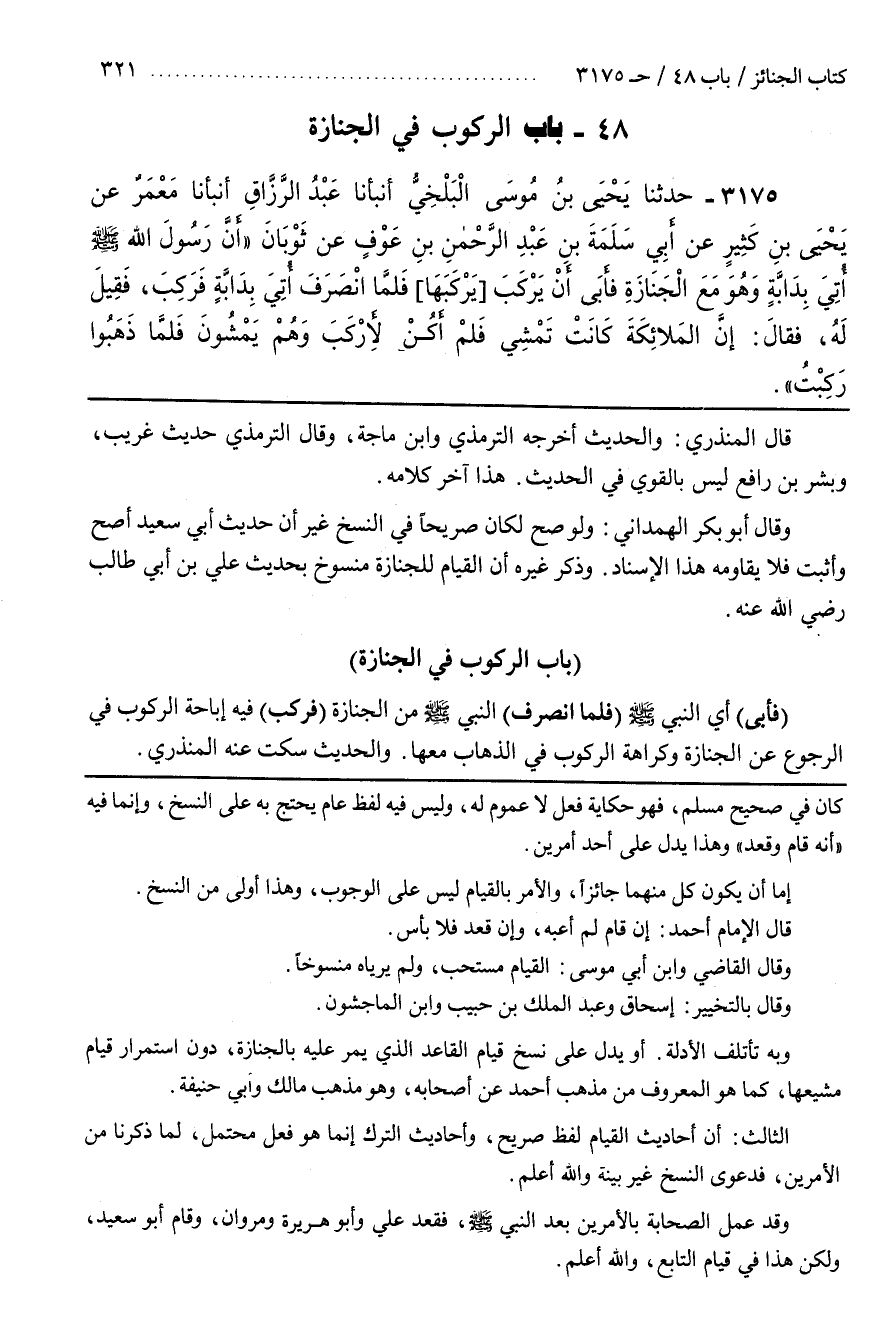 كتاب الجنائز / باب ٤٨ / حـ ٣١٧٥ ................................................ ٣٢١
٤٨ - باب الركوب في الجنازة
٣١٧٥ - حدثنا يَحْيَى بنُ مُوسَى الْبَلْخِيُّ أنبأنا عَبْدُ الرَّزَّاقِ أنبأنا مَعْمَرٌ عن
يَحْيَى بنِ كَثِيرٍ عن أَبِي سَلَمَةَ بنِ عَبْدِ الرَّحْمٰنِ بنِ عَوْفٍ عن ثَوْبَانَ «أَنَّ رَسُولَ الله ﷺ
أُتِيَ بِدَابَّةٍ وَهُوَ مَعَ الْجَنَازَةِ فأَبَى أَنْ يَرْكَبَ [يَرْكَبَهَا] فَلمَّا انْصَرَفَ أُتِيَ بِدَابَّةٍ فَرَكِبَ، فَقِيلَ
لَهُ، فقالَ: إنَّ المَلائِكَةَ كَانَتْ تَمْشِي فَلمْ أَكُنْ لأِرْكَبَ وَهُمْ يَمْشُونَ فَلمَّا ذَهَبُوا
رَكِبْتُ».
قال المنذري: والحديث أخرجه الترمذي وابن ماجة، وقال الترمذي حديث غريب،
وبشر بن رافع ليس بالقوي في الحديث. هذا آخر كلامه.
وقال أبو بكر الهمداني: ولو صح لكان صريحاً في النسخ غير أن حديث أبي سعيد أصح
وأثبت فلا يقاومه هذا الإسناد. وذكر غيره أن القيام للجنازة منسوخ بحديث علي بن أبي طالب
رضي الله عنه.
(باب الركوب في الجنازة)
(فأبى) أي النبي ﷺ (فلما انصرف) النبي ﷺ من الجنازة (فركب) فيه إباحة الركوب في
الرجوع عن الجنازة وكراهة الركوب في الذهاب معها. والحديث سكت عنه المنذري.
كان في صحيح مسلم، فهو حكاية فعل لا عموم له، وليس فيه لفظ عام يحتج به على النسخ، وإنما فيه
«أنه قام وقعد» وهذا يدل على أحد أمرين.
إما أن يكون كل منهما جائزاً، والأمر بالقيام ليس على الوجوب، وهذا أولى من النسخ.
قال الإمام أحمد: إن قام لم أعبه، وإن قعد فلا بأس.
وقال القاضي وابن أبي موسى: القيام مستحب، ولم يرياه منسوخاً.
وقال بالتخيير: إسحاق وعبد الملك بن حبيب وابن الماجشون.
وبه تأتلف الأدلة. أو يدل على نسخ قيام القاعد الذي يمر عليه بالجنازة، دون استمرار قيام
مشيعها، كما هو المعروف من مذهب أحمد عن أصحابه، وهو مذهب مالك وأبي حنيفة.
الثالث: أن أحاديث القيام لفظ صريح، وأحاديث الترك إنما هو فعل محتمل، لما ذكرنا من
الأمرين، فدعوى النسخ غير بينة والله أعلم.
وقد عمل الصحابة بالأمرين بعد النبي ﷺ، فقعد علي وأبو هريرة ومروان، وقام أبو سعيد،
ولكن هذا في قيام التابع، والله أعلم.